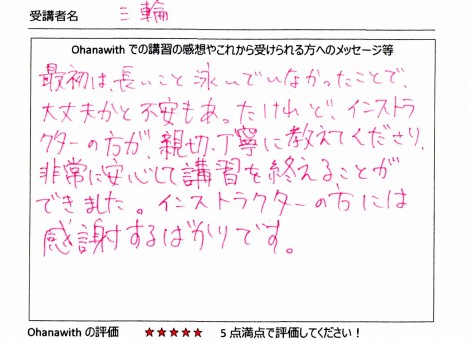 受講者名 三輪
Ohanawith での講習の感想やこれから受けられる方へのメッセージ等
最初は、長いこと泳いでいなかったことで、
大丈夫かと不安もあったけれど、インストラ
クターの方が、親切、丁寧に教えてくださり、
非常に安心して講習を終えることが
できました。インストラクターの方には
感謝するばかりです。
Ohanawith の評価 ★★★★★ 5 点満点で評価してください！